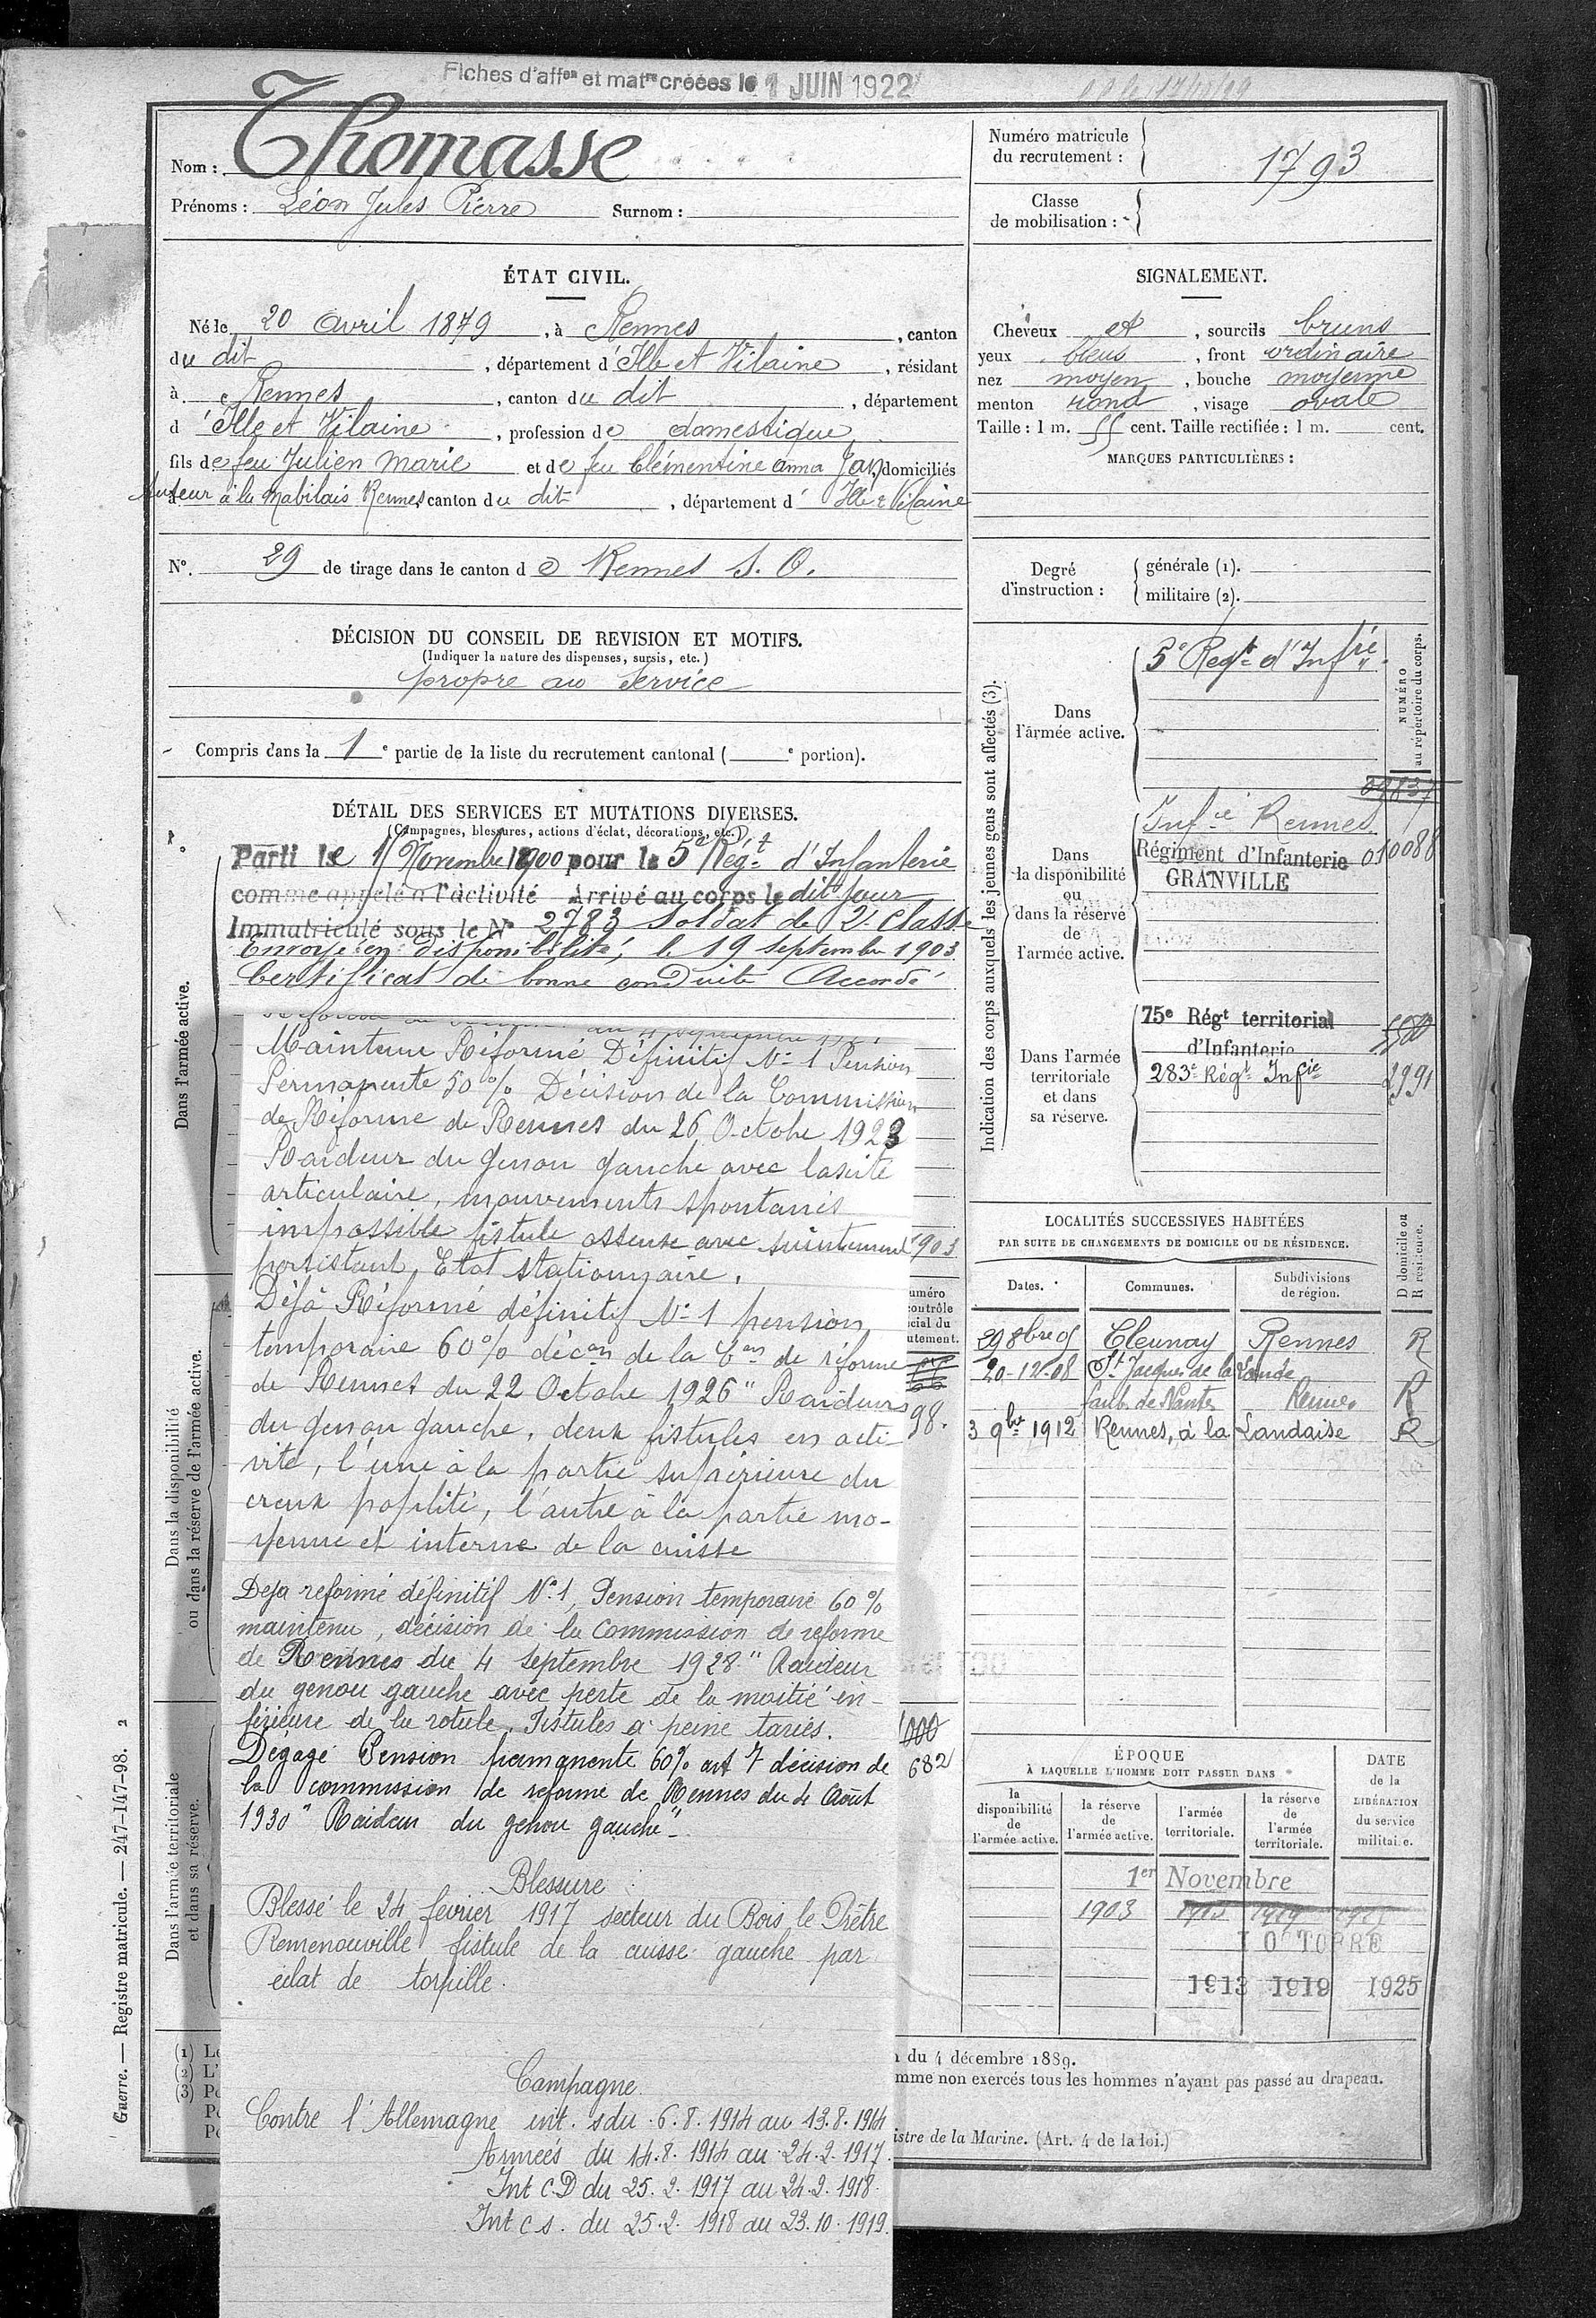 Fiches d'affon et matre créées le 1 JUIN 1922
Nom : Thomasse
Prénoms : Léon Jules Pierre Surnom :
Numéro matricule du recrutement : 1793
Classe de mobilisation :
ÉTAT CIVIL.
Né le 20 avril 1879, à Rennes, canton
du dit, département d'Ille et Vilaine, résidant
à Rennes, canton du dit, département
d'Ille et Vilaine, profession de domestique
fils de feu Julien Marie et de feu Clémentine anna Jan, domiciliés
tuteur à la Mabilais Rennes canton du dit, département d'Ille & Vilaine
No. 29 de tirage dans le canton de Rennes S. O.
DÉCISION DU CONSEIL DE REVISION ET MOTIFS.
(Indiquer la nature des dispenses, sursis, etc.)
propre au service
Compris dans la 1e partie de la liste du recrutement cantonal ( e portion).
SIGNALEMENT.
Cheveux et, sourcils bruns
yeux bleus, front ordinaire
nez moyen, bouche moyenne
menton rond, visage ovale
Taille : 1 m. 55 cent. Taille rectifiée : 1 m. cent.
MARQUES PARTICULIÈRES :
Degré d'instruction :
générale (1).
militaire (2).
DÉTAIL DES SERVICES ET MUTATIONS DIVERSES.
(Campagnes, blessures, actions d'éclat, décorations, etc.)
Dans l'armée active.
Parti le 1 Novembre 1900 pour le 5e Régt d'Infanterie
comme appelé à l'activité Arrivé au corps le dit jour
Immatriculé sous le No 2783 Soldat de 2e Classe
Envoyé en disponibilité, le 19 septembre 1903
Certificat de bonne conduite Accordé
Maintenu Réformé Définitif No 1 Pension
Permanente 50 % Décision de la Commission
de Réforme de Rennes du 26 Octobre 1923
Raideur du genou gauche avec laxité
articulaire, mouvements spontanés
impossible fistule osseuse avec suintement
persistant, Etat stationnaire.
Déjà Réformé définitif No 1 pension
temporaire 60% décon de la Con de réforme
de Rennes du 22 Octobre 1926 " Raideurs
du genou gauche, deux fistules en acti-
vité, l'une à la partie supérieure du
creux poplité, l'autre à la partie mo-
yenne et interne de la cuisse
Deja reformé définitif No 1, Pension temporaire 60%
maintenu, décision de la Commission de reforme
de Rennes du 4 septembre 1928 " Raideur
du genou gauche avec perte de la moitié in-
férieure de la rotule. Fistules à peine taries.
Dégagé Pension permanente 60% art 7 décision de
la commission de reforme de Rennes du 4 Août
1930 " Raideur du genou gauche "
Blessure :
Blessé le 24 fevrier 1917 secteur du Bois le Prêtre
Remenouville fistule de la cuisse gauche par
éclat de torpille.
Campagne.
Contre l'Allemagne int. s du 6.8.1914 au 13.8.1914
Armées du 14.8.1914 au 24.2.1917.
Int C.D du 25.2.1917 au 24.2.1918.
Int c s. du 25.2.1918 au 23.10.1919.
1903
98.
1000
682
Dans la disponibilité ou dans la réserve de l'armée active.
Dans l'armée territoriale et dans sa réserve.
Indication des corps auxquels les jeunes gens sont affectés (3).
NUMÉRO au répertoire du corps.
Dans l'armée active.
5e Regt d'Infrie
Dans la disponibilité ou dans la réserve de l'armée active.
09837
Infie Rennes
Régiment d'Infanterie 010088
GRANVILLE
Dans l'armée territoriale et dans sa réserve.
75e Régt territorial
d'Infanterie
283e Régt Infie 2991
LOCALITÉS SUCCESSIVES HABITÉES
PAR SUITE DE CHANGEMENTS DE DOMICILE OU DE RÉSIDENCE.
Dates. Communes. Subdivisions de région. D domicile ou R résidence.
29 8bre 05 Cleunay Rennes R
20-12-08 St Jacques de la Lande
faub. de Nantes Rennes R
3 9bre 1912 Rennes, à la Landaise R
ÉPOQUE
À LAQUELLE L'HOMME DOIT PASSER DANS
la disponibilité de l'armée active.
la réserve de l'armée active.
l'armée territoriale.
la réserve de l'armée territoriale.
DATE de la LIBÉRATION du service militaire.
1er Novembre
1903
1 OCTOBRE
1913 1919 1925
(1) Le
(2) L'
(3) Po
n du 4 décembre 1889.
mme non exercés tous les hommes n'ayant pas passé au drapeau.
istre de la Marine. (Art. 4 de la loi.)
Guerre. — Registre matricule. — 247-147-98. 2